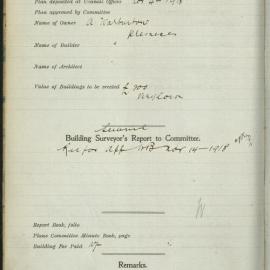 Plan deposited at Council Office Nov 4th 1918
Plan approved by Committee
Name of Owner A Warburton
Name of Builder "
Name of Architect
Value of Buildings to be erected £900
Building Surveyor's Report to Committee.
Nov 14-1918
Report Book, folio
Plans Committee Minute Book, page
Building Fee Paid
Remarks.